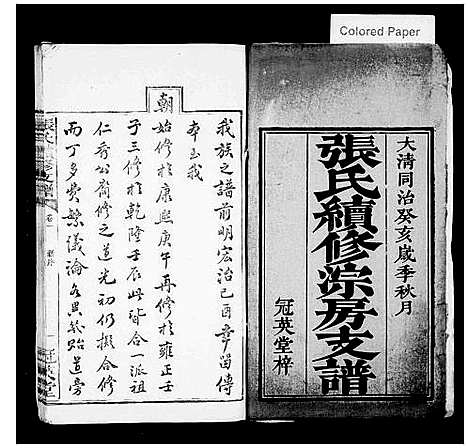 Colored Paper
大清同治癸亥歲季秋月
張氏續修淙房支譜
冠英堂梓
我族之譜前明宏治己酉草曽傳
本至我
朝始修於康熙庚午再修於雍正壬
子三修於乾隆壬辰此皆合一派祖
仁秀公裔修之道光初仍擬合修
而丁多費繁議論各異幾貽道旁